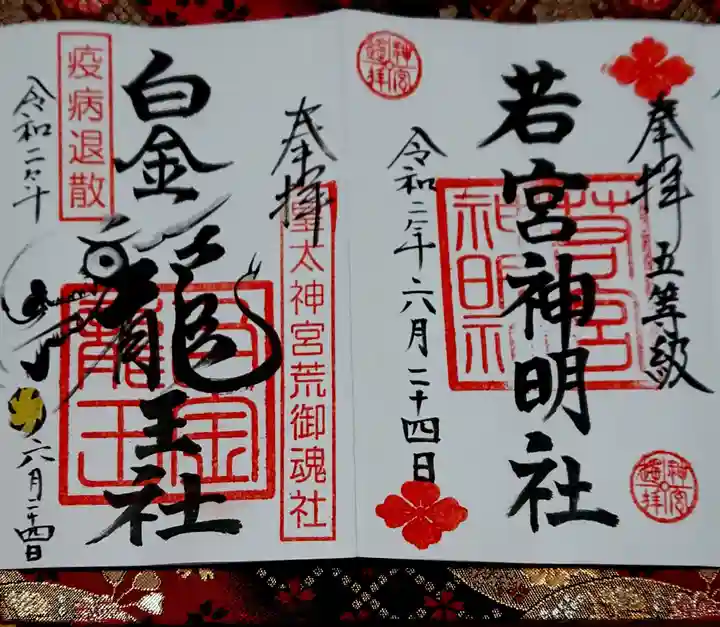 奉拝 五等級
若宮神明社
若宮神明社
神宮遥拝
神宮遥拝
令和二年六月二十四日
奉拝
皇太神宮荒御魂社
白金龍王社
白金龍王
疫病退散
令和二年
六月二十四日